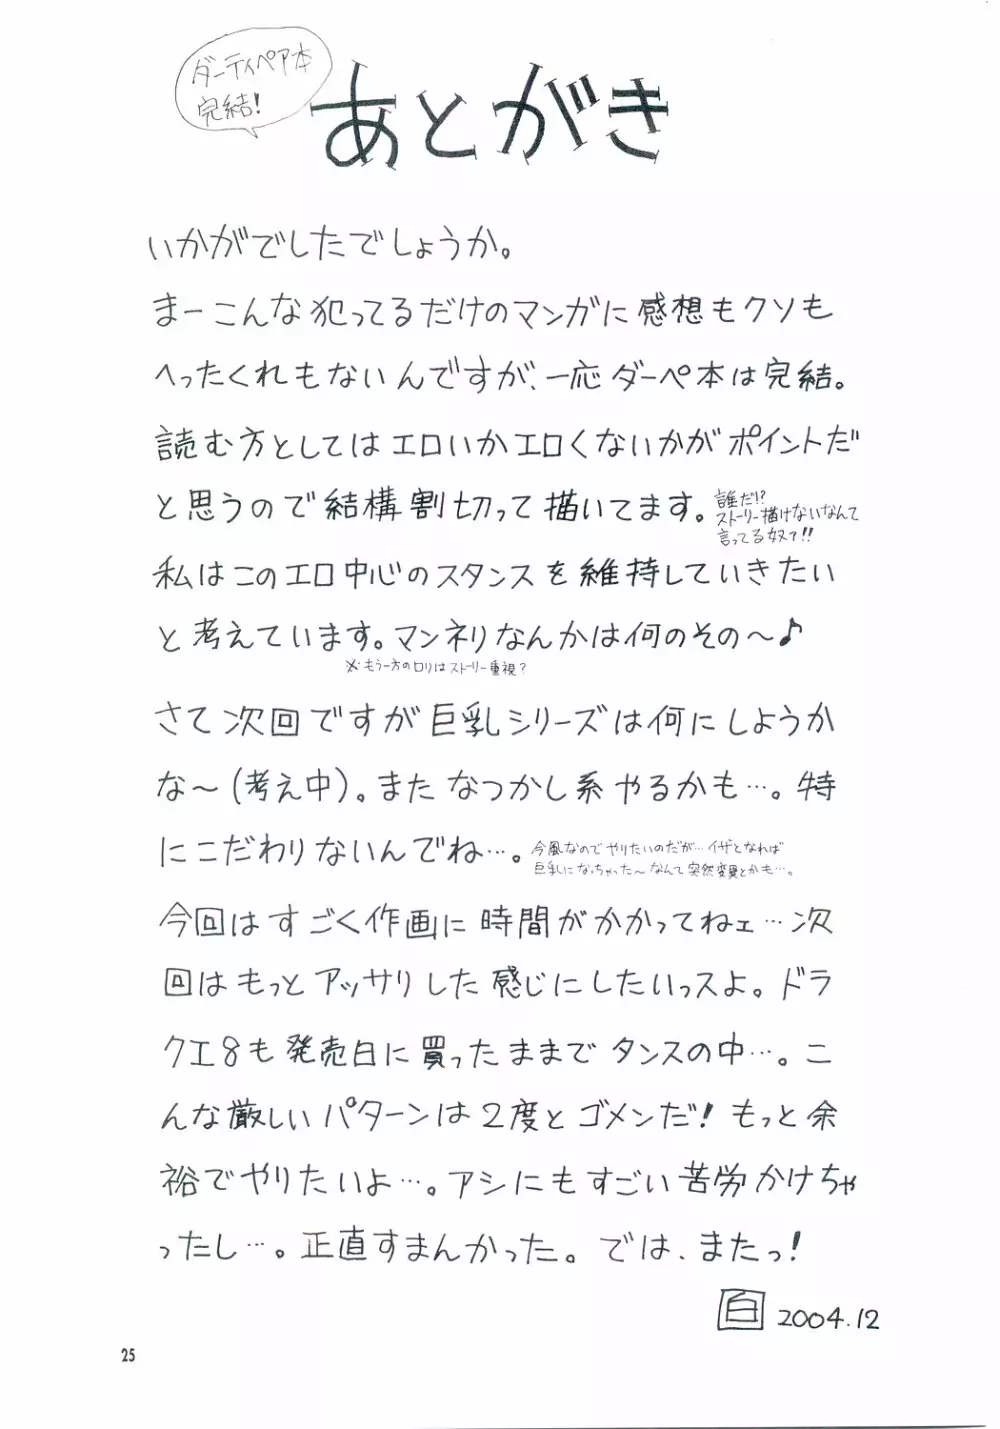 ダーティペア本
完結!
あとがき
いかがでしたでしょうか。
まーこんな犯ってるだけのマンガに感想もクソも
へったくれもないんですが、一応ダーペ本は完結。
読む方としてはエロいかエロくないかがポイントだ
と思うので結構割切って描いてます。
誰だ!?
ストーリー描けないなんて
言ってる奴ァ!!
私はこのエロ中心のスタンスを維持していきたい
と考えています。マンネリなんかは何のその〜♪
※もう一方のロリはストーリー重視?
さて次回ですが巨乳シリーズは何にしようか
な〜(考え中)。またなつかし系やるかも…。特
にこだわりないんでね…。
今風なのでやりたいのだが…イザとなれば
巨乳になっちゃった〜なんて突然変異とかも…。
今回はすごく作画に時間がかかってねェ…次
回はもっとアッサリした感じにしたいっスよ。ドラ
クエ8も発売日に買ったままでタンスの中…。こ
んな厳しいパターンは2度とゴメンだ!もっと余
裕でやりたいよ…。アシにもすごい苦労かけちゃ
ったし…。正直すまんかった。では、またっ!
白 2004.12
25